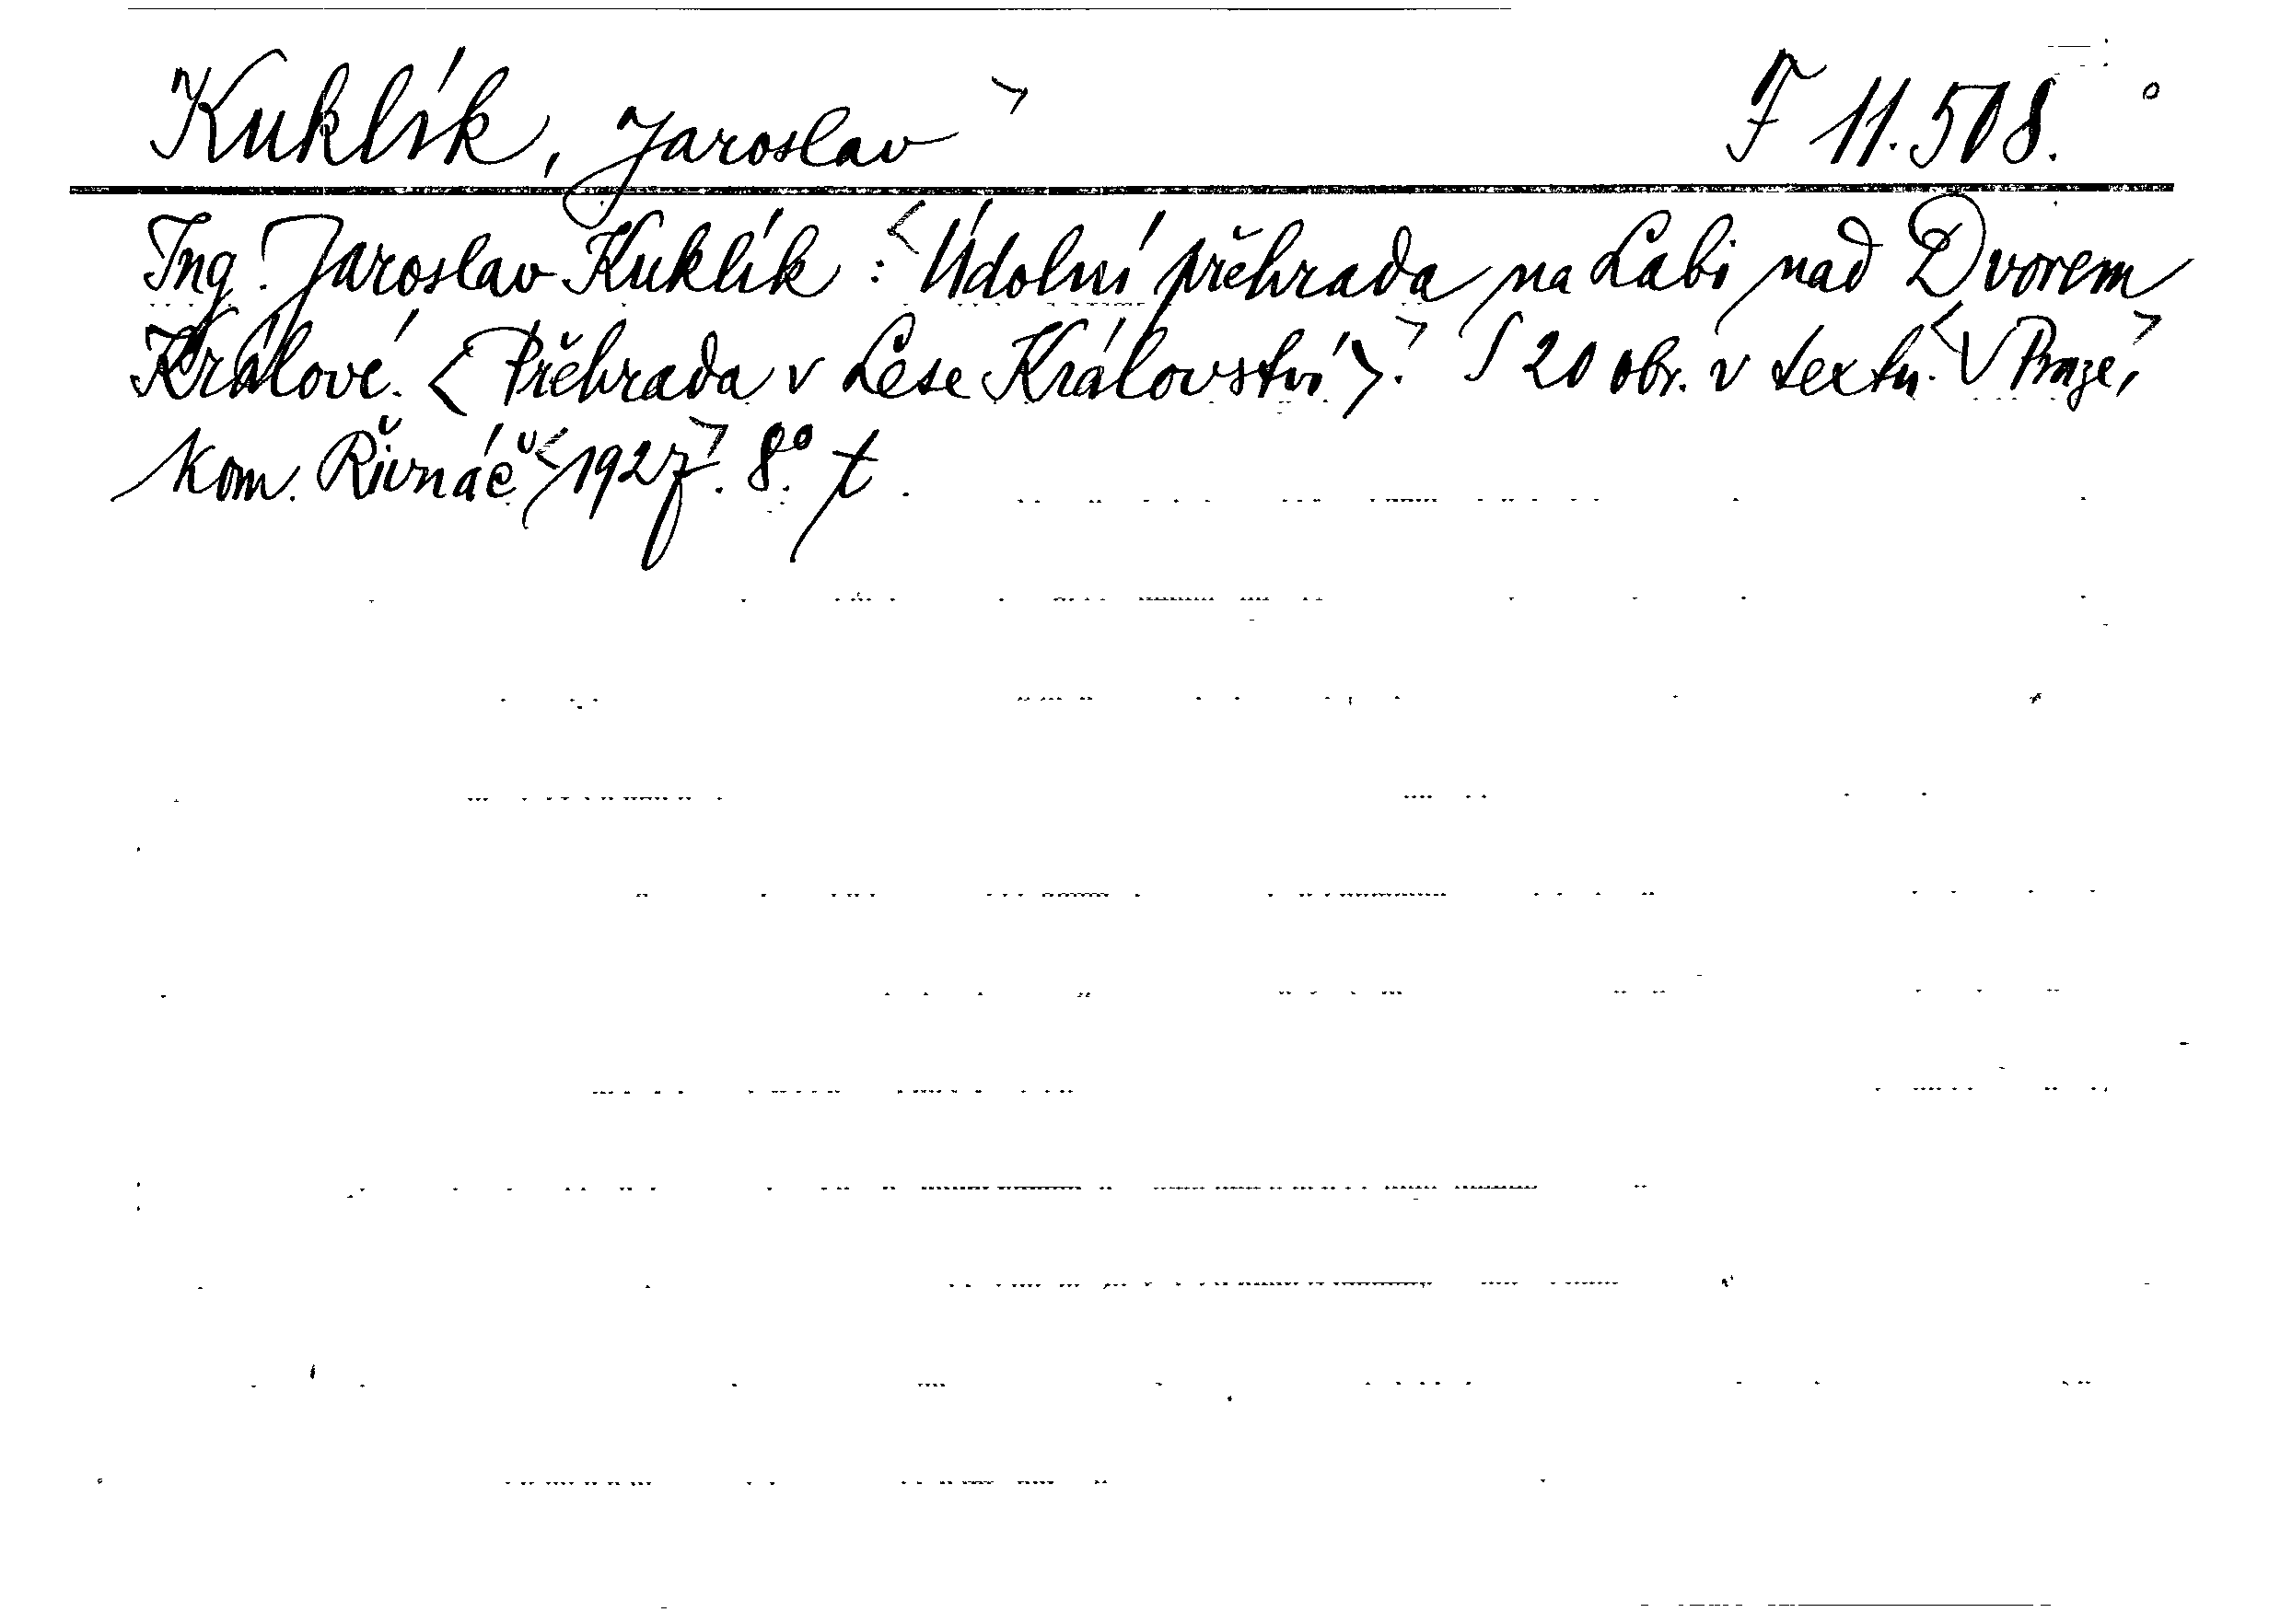 Kuklík, Jaroslav> F 11.508.
Ing. Jaroslav Kuklík: <Údolní přehrada na Labi nad Dvorem
Králové. <Přehrada v Lese Království>.> S 20 obr. v textu. <V Praze,>
kom. Řivnáč <1927>. 8° t.